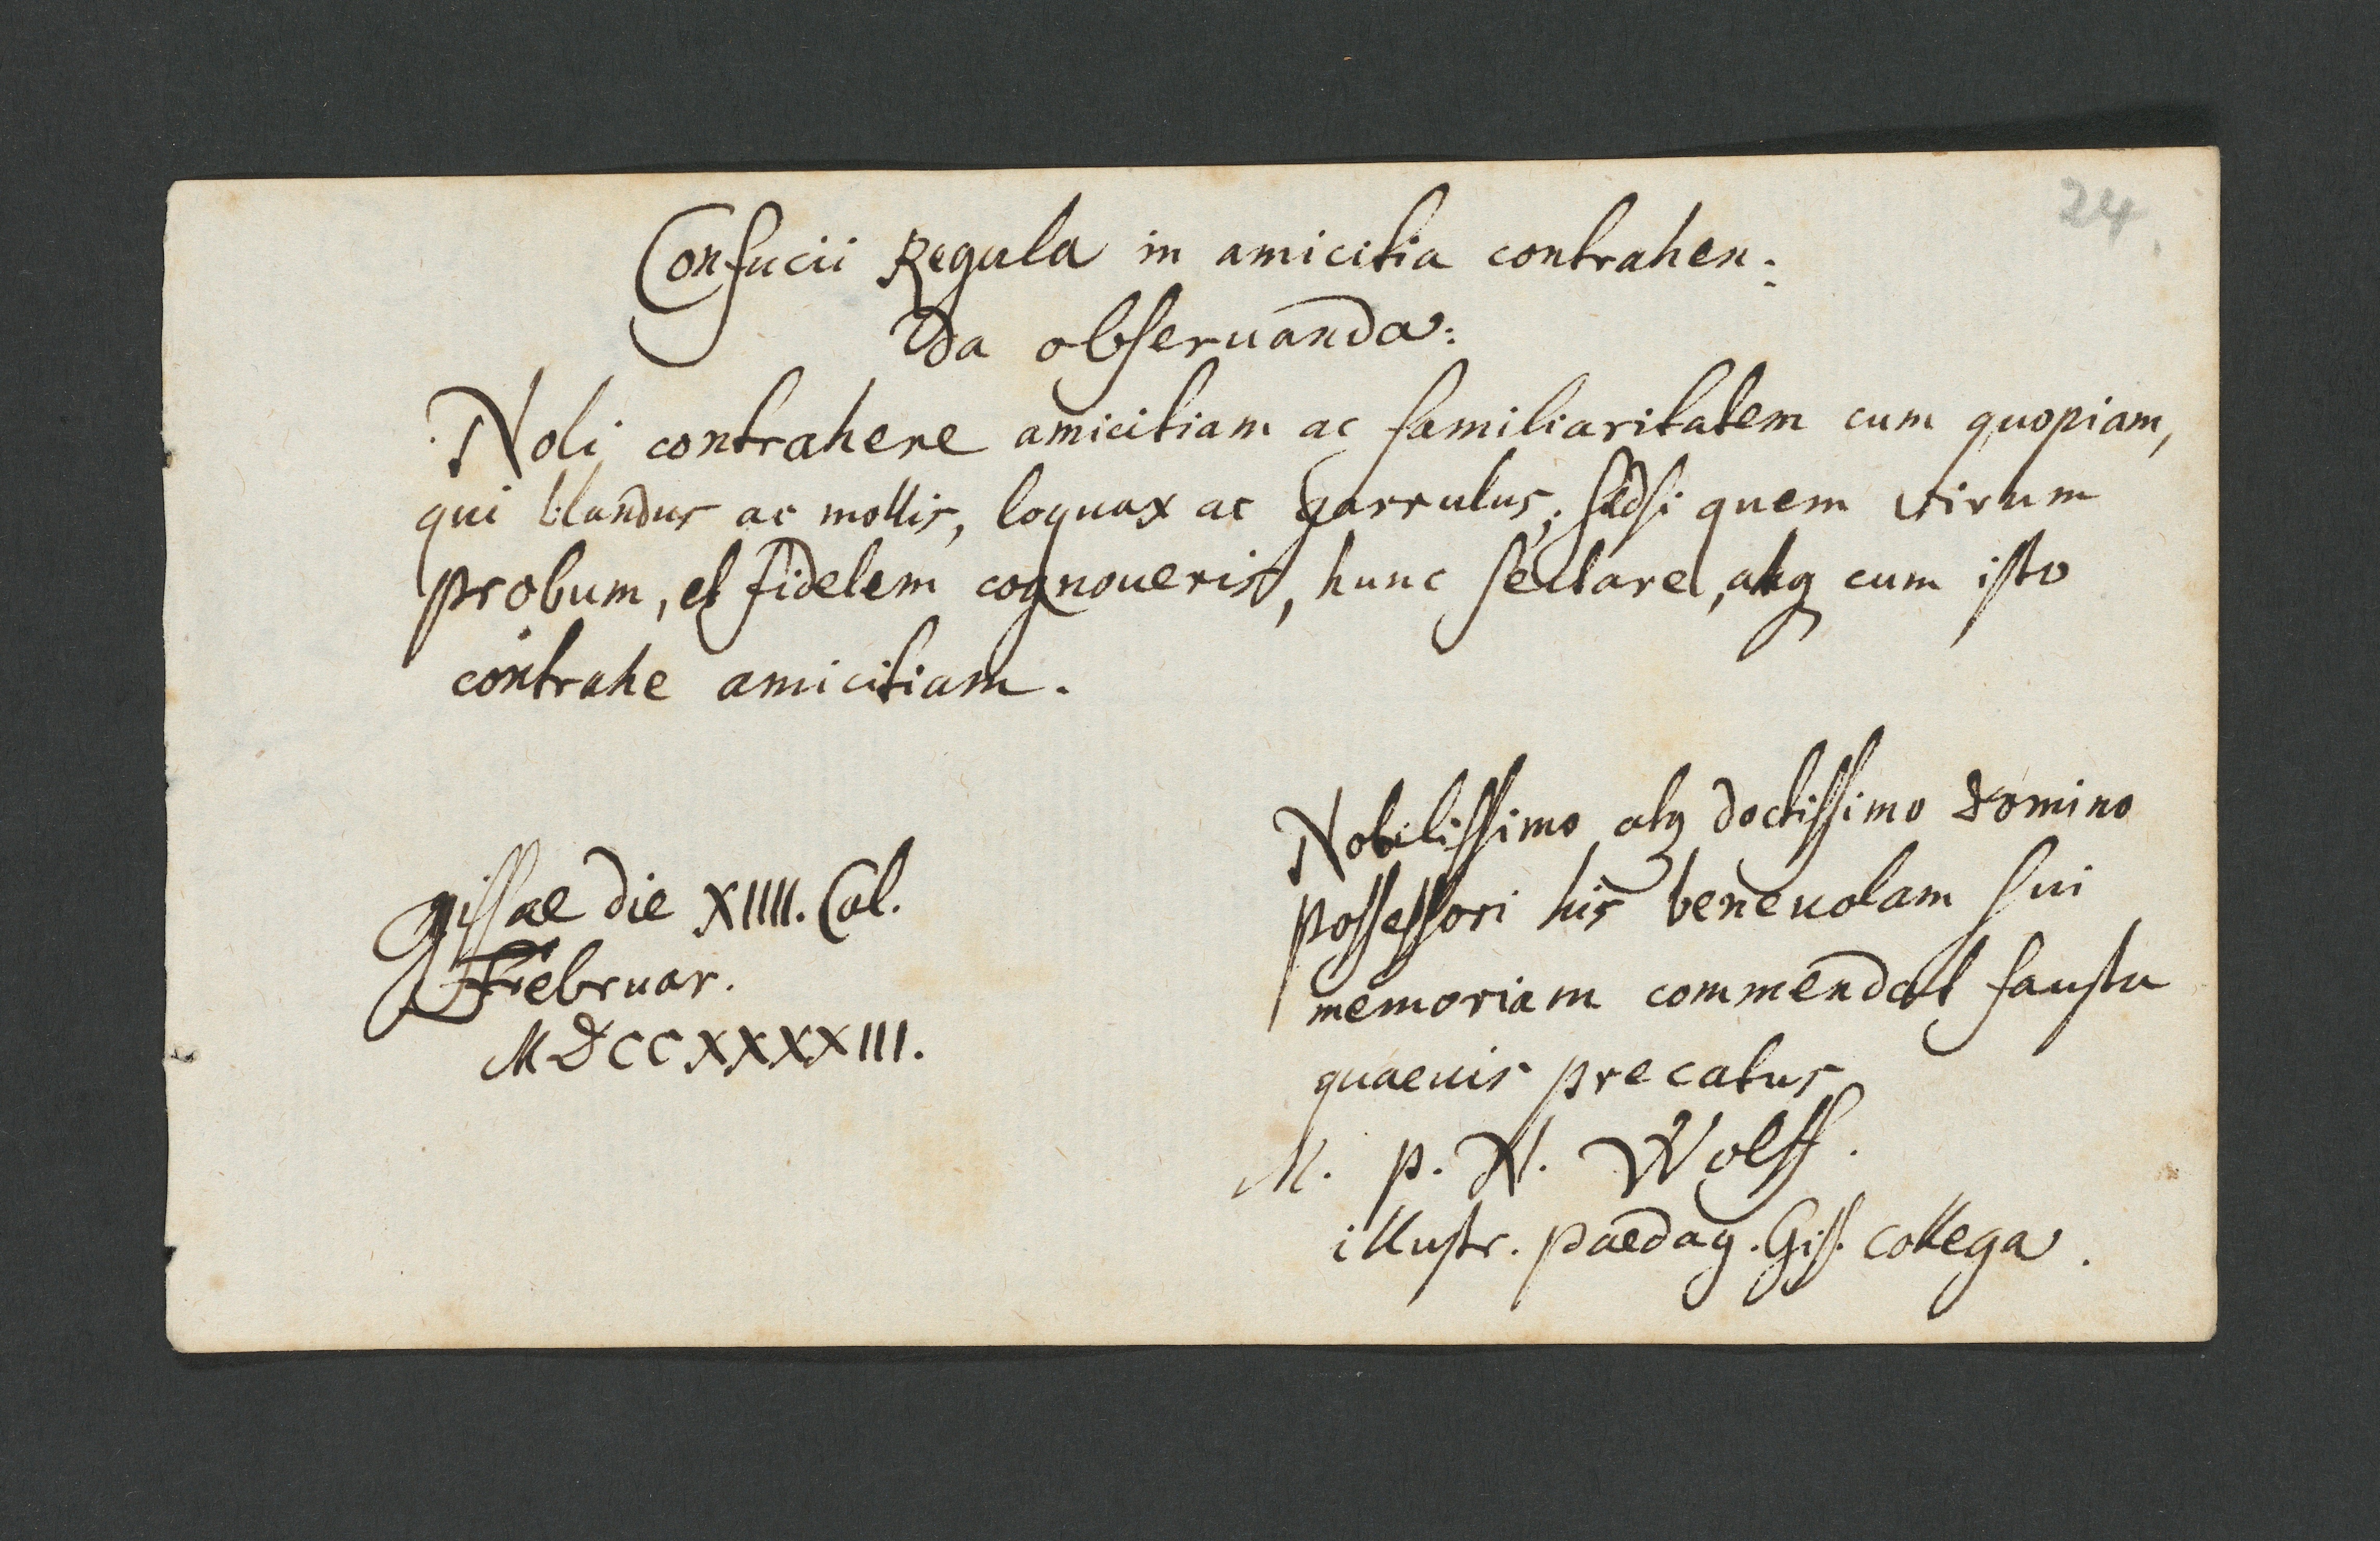 24.
Confucii Regula in amicitia contrahen:
da obseruanda:
Noli contrahere amicitiam ac familiaritatem cum quopiam,
qui blandus ac mollis, loquax ac garrulus; sed si quem virum
probum, et fidelem cognoueris, hunc sectare, atq cum isto
contrahe amicitiam.
Gissae die XIIII. Cal.
Februar.
MDCCXXXXIII.
Nobilissimo atq doctissimo domino
possessori his beneuolam sui
memoriam commendat fausta
quaeuis precatus
M. P. N. Wolff.
illustr. paedag. Giss. collega.